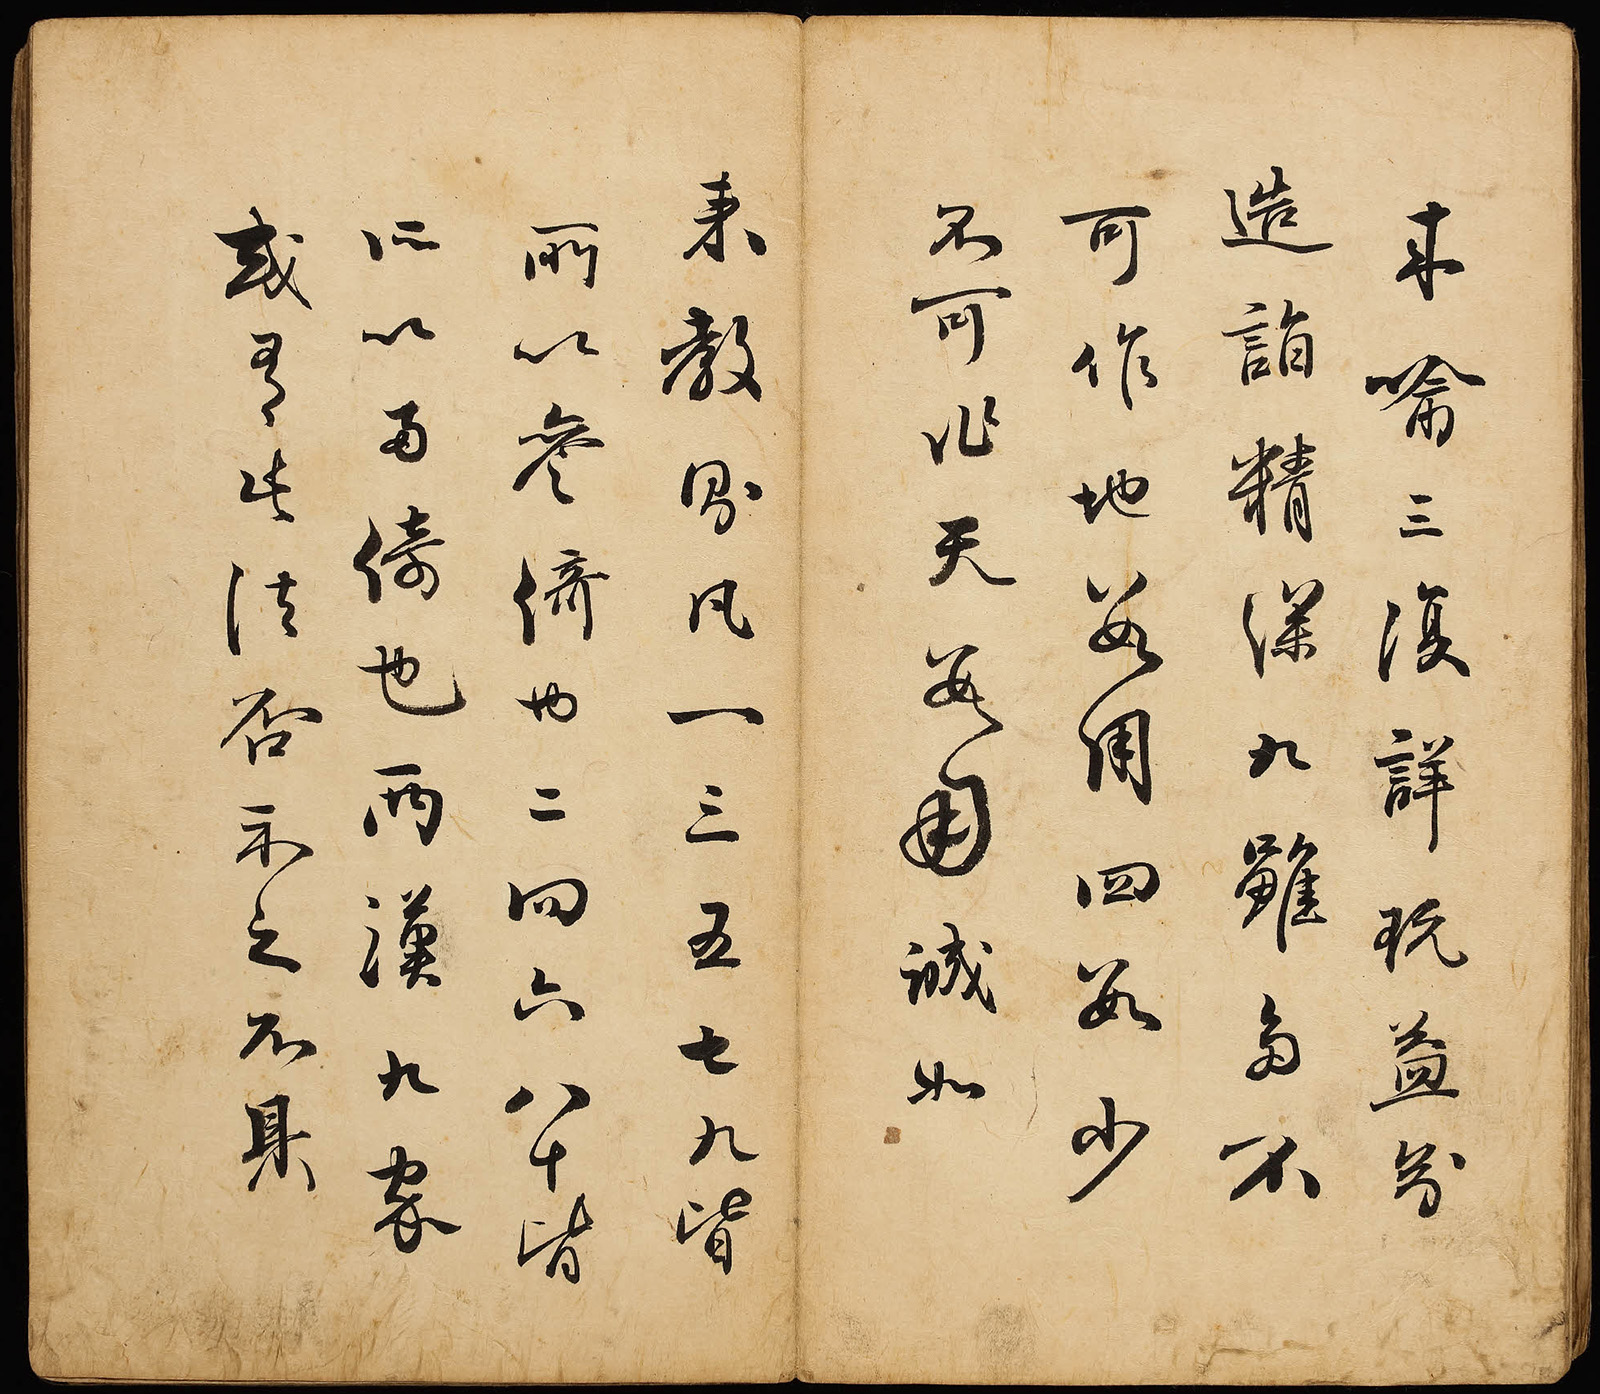 來喻三復詳玩益
造詣精深九雖多不
可作地數用四數少
不可作天數用誠如
來教則凡一三五七九皆
所以參倚也二四六八十皆
所以兩倚也兩漢九家
或有此法否示之不具